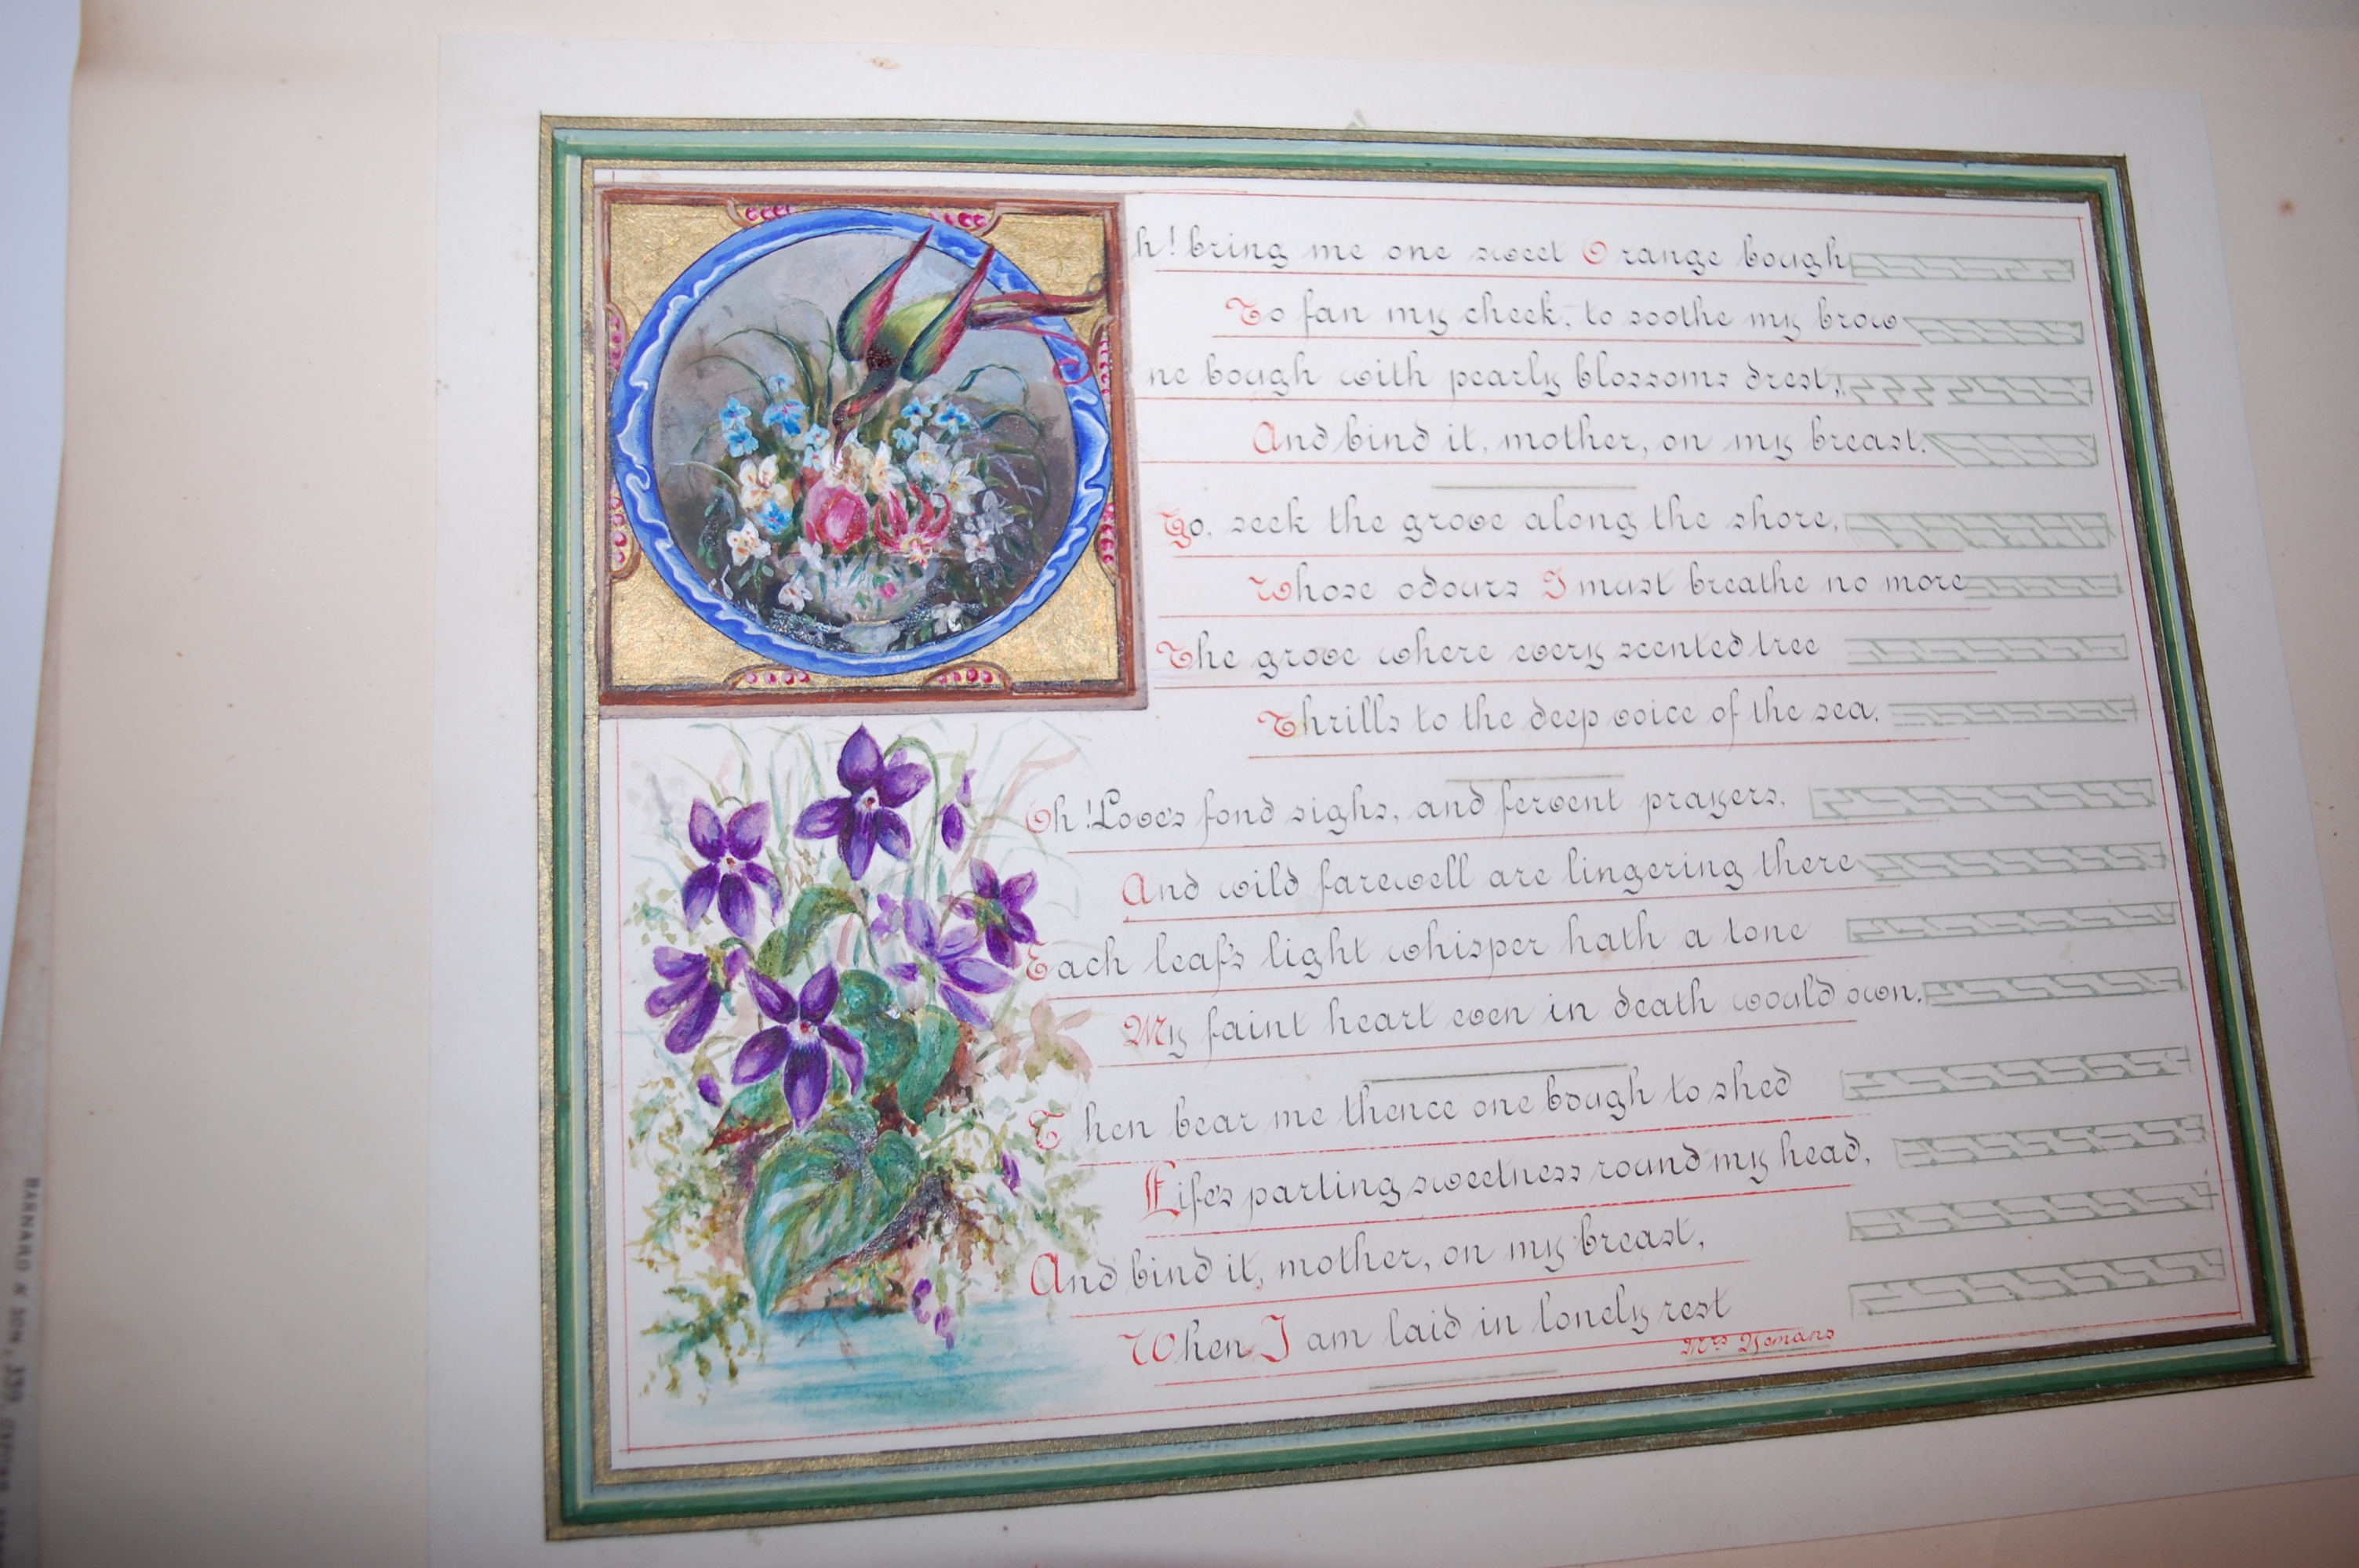 h! bring me one sweet Orange bough
To fan my cheek, to soothe my brow
ne bough with pearly blossoms drest,
And bind it, mother, on my breast.
Go, seek the grove along the shore,
Whose odours I must breathe no more
The grove where every scented tree
Thrills to the deep voice of the sea.
Oh! Love's fond sighs, and fervent prayers,
And wild farewell are lingering there
Each leaf's light whisper hath a tone
My faint heart even in death would own.
Then bear me thence one bough to shed
Life's parting sweetness round my head,
And bind it, mother, on my breast,
When I am laid in lonely rest
Mrs Hemans
BARNARD & SON, 339,